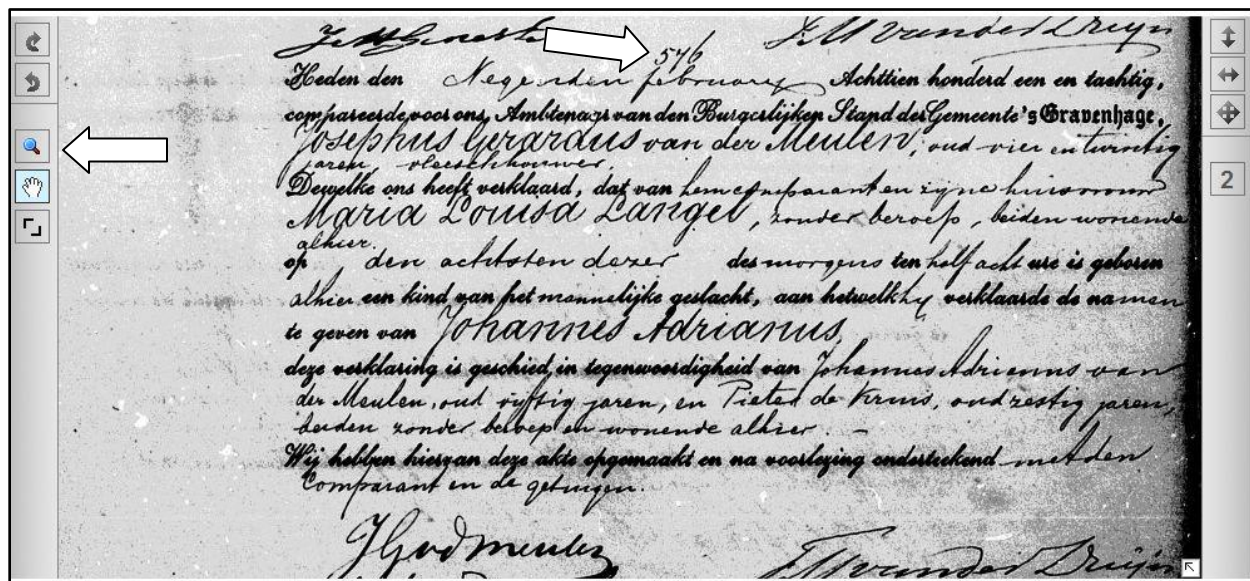 van der Kruijn
546
Heden den Negenden february Achttien honderd een en tachtig,
compareerde voor ons, Ambtenaar van den Burgerlijken Stand der Gemeente 's Gravenhage,
Josephus Gerardus van der Meulen, oud vier en twintig
jaren, vleeschhouwer,
Dewelke ons heeft verklaard, dat van hem comparant en zijne huisvrouw
Maria Louisa Langel, zonder beroep, beiden wonende
alhier.
op den achtsten dezer des morgens ten half acht ure is geboren
alhier een kind van het mannelijke geslacht, aan hetwelk hij verklaarde de namen
te geven van Johannes Adrianus,
deze verklaring is geschied in tegenwoordigheid van Johannes Adrianus van
der Meulen, oud vijftig jaren, en Pieter de Kruis, oud zestig jaren,
beiden zonder beroep en wonende alhier. —
Wij hebben hiervan deze akte opgemaakt en na voorlezing onderteekend met den
Comparant en de getuigen.
2